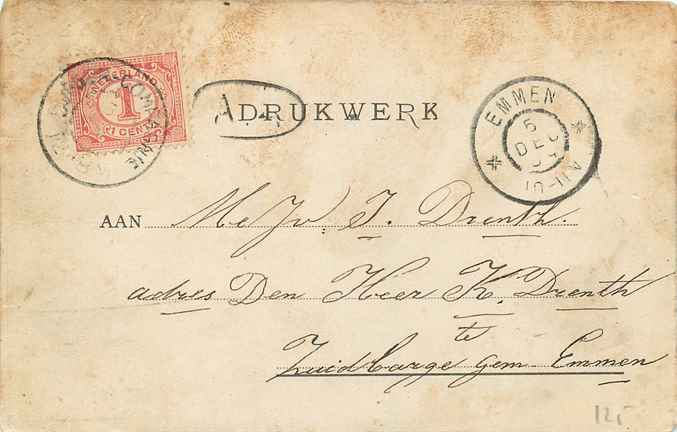 NEDERLAND
1
1 CENT
DRUKWERK
EMMEN
5
DEC
AAN Mej J. Drenth.
adres Den Heer K. Drenth
te
Zuidbarge gem Emmen